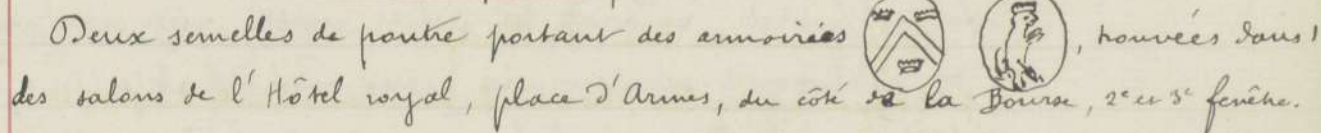 Deux semelles de poutre portant des armoiries , trouvées dans l
des salons de l'Hôtel royal, place d'Armes, du côté de la Bourse, 2e et 3e fenêtre.